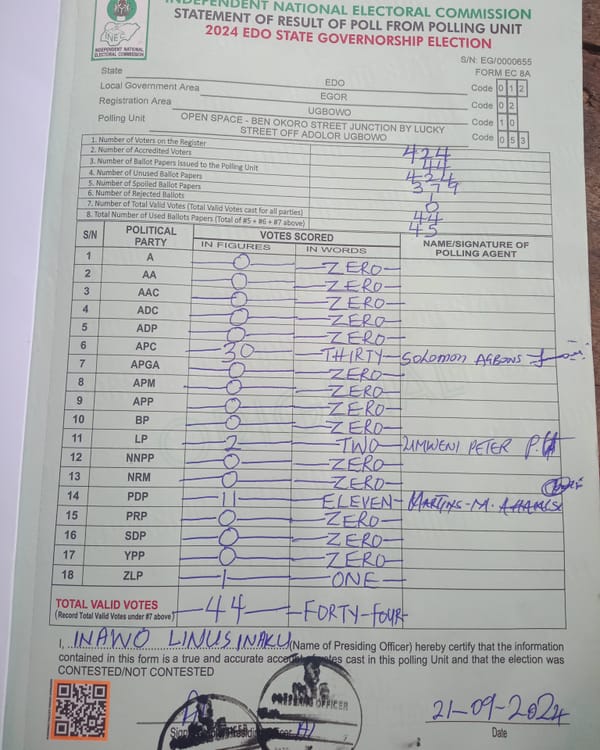 INDEPENDENT NATIONAL ELECTORAL COMMISSION
STATEMENT OF RESULT OF POLL FROM POLLING UNIT
2024 EDO STATE GOVERNORSHIP ELECTION
INEC
INDEPENDENT NATIONAL
ELECTORAL COMMISSION
S/N: EG/0000655
FORM EC 8A
State EDO Code 0 1 2
Local Government Area EGOR Code 0 2
Registration Area UGBOWO Code 1 0
Polling Unit OPEN SPACE - BEN OKORO STREET JUNCTION BY LUCKY
STREET OFF ADOLOR UGBOWO Code 0 5 3
1. Number of Voters on the Register 424
2. Number of Accredited Voters 44
3. Number of Ballot Papers Issued to the Polling Unit 424
4. Number of Unused Ballot Papers 379
5. Number of Spoiled Ballot Papers 1
6. Number of Rejected Ballots 0
7. Number of Total Valid Votes (Total Valid Votes cast for all parties) 44
8. Total Number of Used Ballots Papers (Total of #5 + #6 + #7 above) 45
S/N POLITICAL PARTY VOTES SCORED NAME/SIGNATURE OF POLLING AGENT
IN FIGURES IN WORDS
1 A 0 ZERO
2 AA 0 ZERO
3 AAC 0 ZERO
4 ADC 0 ZERO
5 ADP 0 ZERO
6 APC 30 THIRTY SOLOMON AGBONS
7 APGA 0 ZERO
8 APM 0 ZERO
9 APP 0 ZERO
10 BP 0 ZERO
11 LP 2 TWO UMWENI PETER
12 NNPP 0 ZERO
13 NRM 0 ZERO
14 PDP 11 ELEVEN MARTINS-M.
15 PRP 0 ZERO
16 SDP 0 ZERO
17 YPP 0 ZERO
18 ZLP 1 ONE
TOTAL VALID VOTES 44 FORTY-FOUR
(Record Total Valid Votes under #7 above)
I, INAWO LINUS INAKU (Name of Presiding Officer) hereby certify that the information
contained in this form is a true and accurate of votes cast in this polling Unit and that the election was
CONTESTED/NOT CONTESTED
PRESIDING OFFICER
21-09-2024
Date